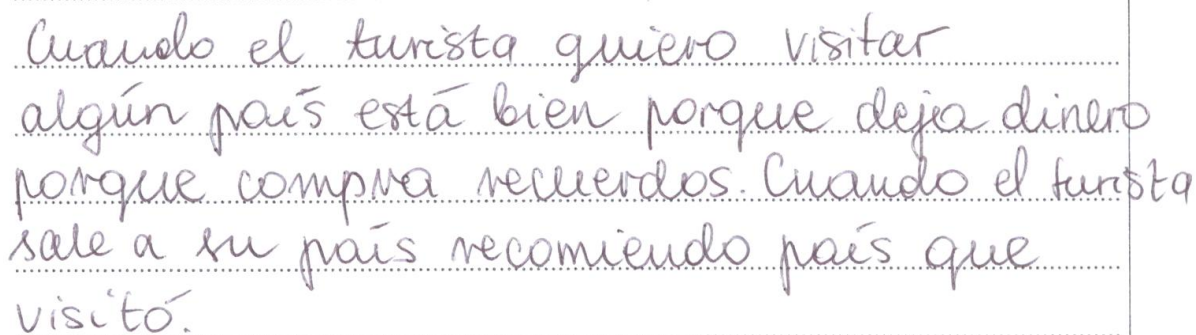 Cuando el turista quiero visitar
algún país está bien porque deja dinero
porque compra recuerdos. Cuando el turista
sale a su país recomiendo país que
visitó.